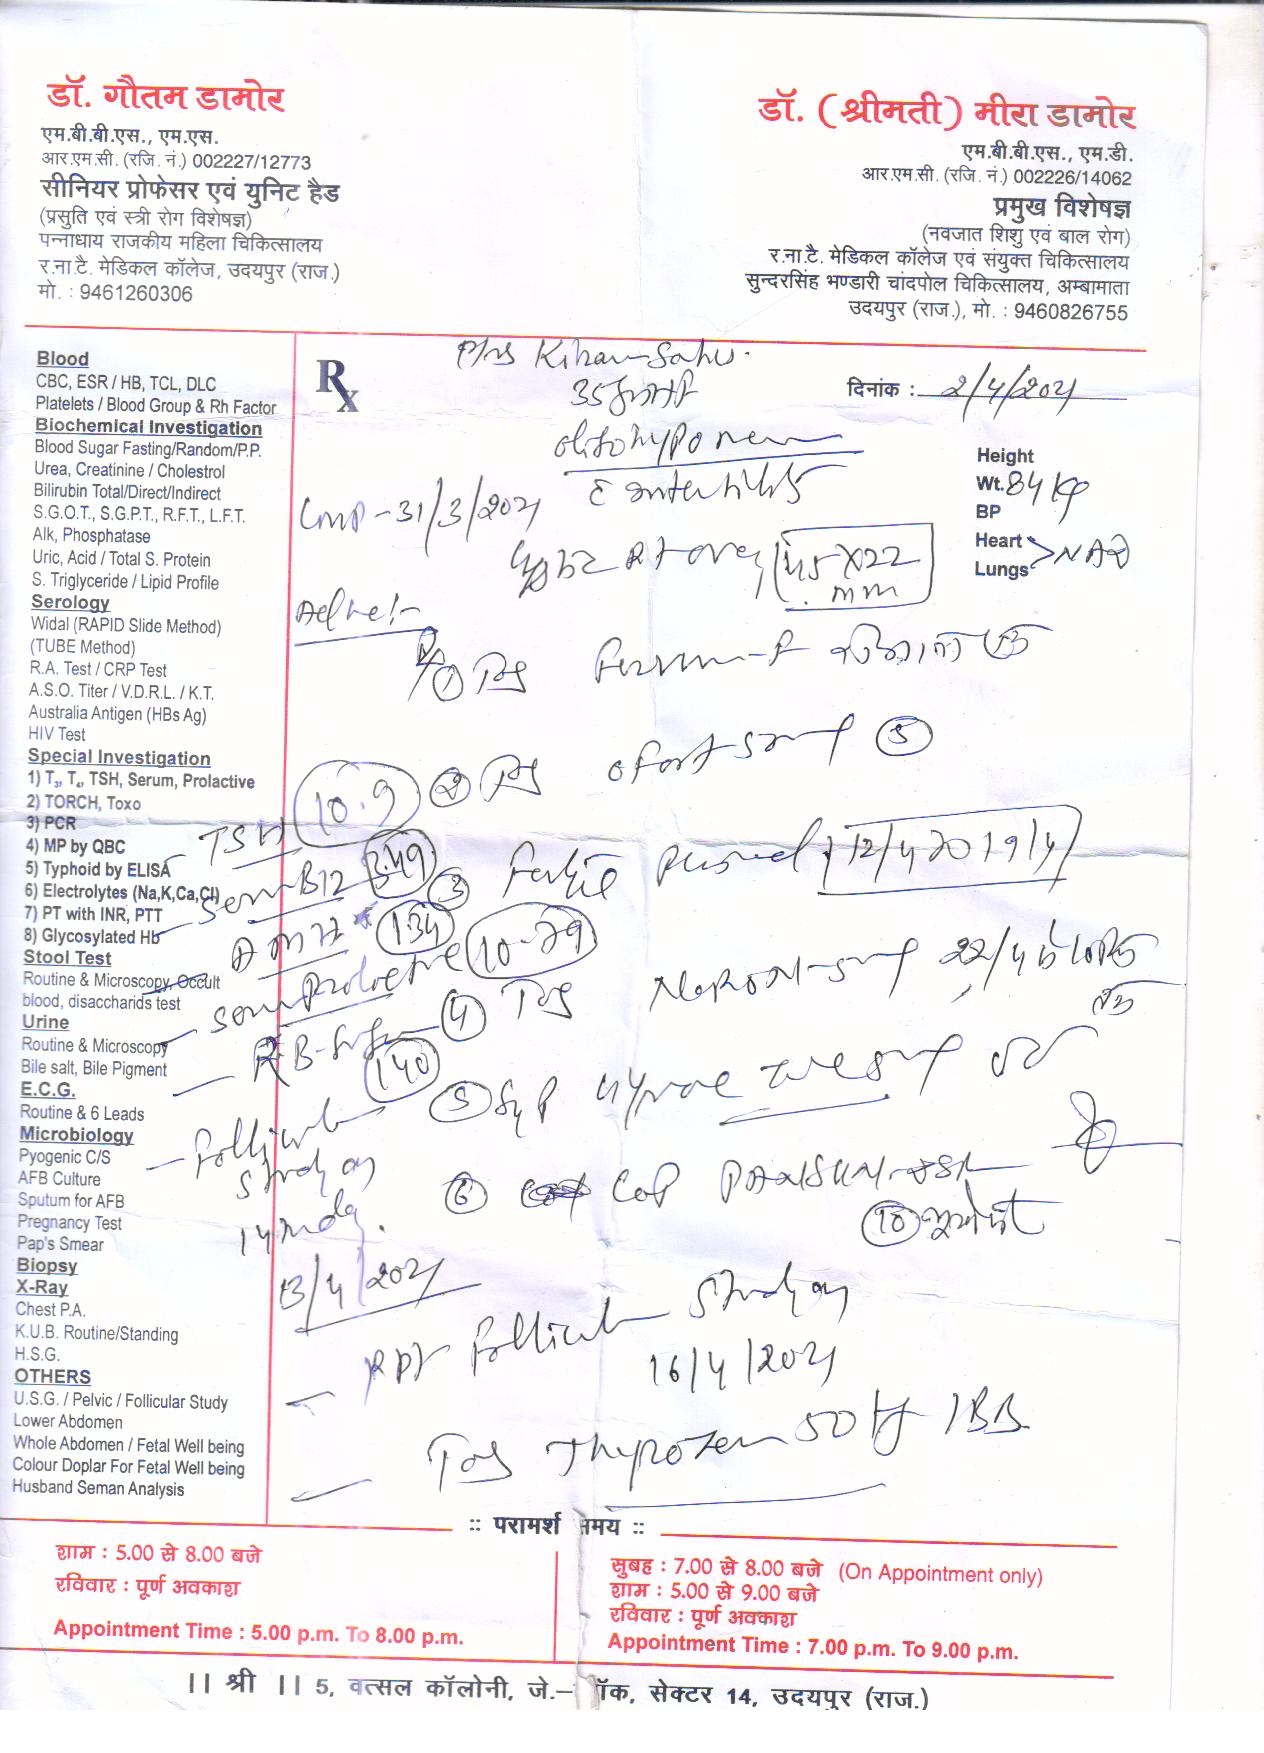 डॉ. गौतम डामोर
एम.बी.बी.एस., एम.एस.
आर.एम.सी. (रजि. नं.) 002227/12773
सीनियर प्रोफेसर एवं युनिट हैड
(प्रसुति एवं स्त्री रोग विशेषज्ञ)
पन्नाधाय राजकीय महिला चिकित्सालय
र.ना.टै. मेडिकल कॉलेज, उदयपुर (राज.)
मो. : 9461260306
डॉ. (श्रीमती) मीरा डामोर
एम.बी.बी.एस., एम.डी.
आर.एम.सी. (रजि. नं.) 002226/14062
प्रमुख विशेषज्ञ
(नवजात शिशु एवं बाल रोग)
र.ना.टै. मेडिकल कॉलेज एवं संयुक्त चिकित्सालय
सुन्दरसिंह भण्डारी चांदपोल चिकित्सालय, अम्बामाता
उदयपुर (राज.), मो. : 9460826755
Blood
CBC, ESR / HB, TCL, DLC
Platelets / Blood Group & Rh Factor
Biochemical Investigation
Blood Sugar Fasting/Random/P.P.
Urea, Creatinine / Cholestrol
Bilirubin Total/Direct/Indirect
S.G.O.T., S.G.P.T., R.F.T., L.F.T.
Alk, Phosphatase
Uric, Acid / Total S. Protein
S. Triglyceride / Lipid Profile
Serology
Widal (RAPID Slide Method)
(TUBE Method)
R.A. Test / CRP Test
A.S.O. Titer / V.D.R.L. / K.T.
Australia Antigen (HBs Ag)
HIV Test
Special Investigation
1) T₃, T₄, TSH, Serum, Prolactive
2) TORCH, Toxo
3) PCR
4) MP by QBC
5) Typhoid by ELISA
6) Electrolytes (Na,K,Ca,Cl)
7) PT with INR, PTT
8) Glycosylated Hb
Stool Test
Routine & Microscopy, Occult
blood, disaccharids test
Urine
Routine & Microscopy
Bile salt, Bile Pigment
E.C.G.
Routine & 6 Leads
Microbiology
Pyogenic C/S
AFB Culture
Sputum for AFB
Pregnancy Test
Pap's Smear
Biopsy
X-Ray
Chest P.A.
K.U.B. Routine/Standing
H.S.G.
OTHERS
U.S.G. / Pelvic / Follicular Study
Lower Abdomen
Whole Abdomen / Fetal Well being
Colour Doplar For Fetal Well being
Husband Seman Analysis
Rx
Kiran Sahu
35
दिनांक : 2/4/2021
Height
Wt. 84 kg
BP
Heart
Lungs NAD
LMP - 31/3/2021
Rt ovary 45 X 22
mm
Advise :-
① Tab
② Tab
③ Fertile period 12/4 to 19/4
④ Tab 22/4
⑤ Syp
⑥ Cap
⑩
TSH 10.9
Serum B12 349
AMH 1.34
Serum Prolactine 10-29
R-B-Sugar 140
Follicular
Study on
14th day.
13/4/2021
Rpt Follicular Study on
16/4/2021
Tab Thyrox 50 IBB
:: परामर्श समय ::
शाम : 5.00 से 8.00 बजे
रविवार : पूर्ण अवकाश
Appointment Time : 5.00 p.m. To 8.00 p.m.
सुबह : 7.00 से 8.00 बजे (On Appointment only)
शाम : 5.00 से 9.00 बजे
रविवार : पूर्ण अवकाश
Appointment Time : 7.00 p.m. To 9.00 p.m.
|| श्री || 5, वत्सल कॉलोनी, जे.– ॉक, सेक्टर 14, उदयपुर (राज.)